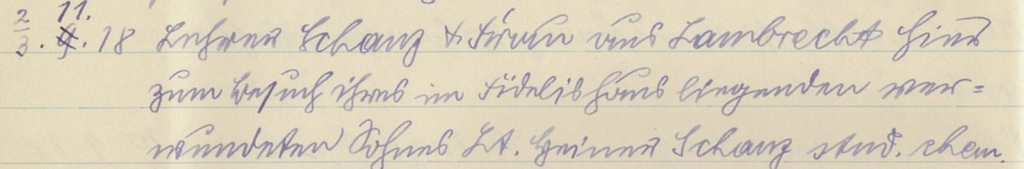 2/3. 11. 18 Lehrer Schanz & Frau aus Lambrecht hier
zum Besuch ihres im Fidelishaus liegenden ver=
wundeten Sohnes Lt. Heiner Schanz stud. chem.